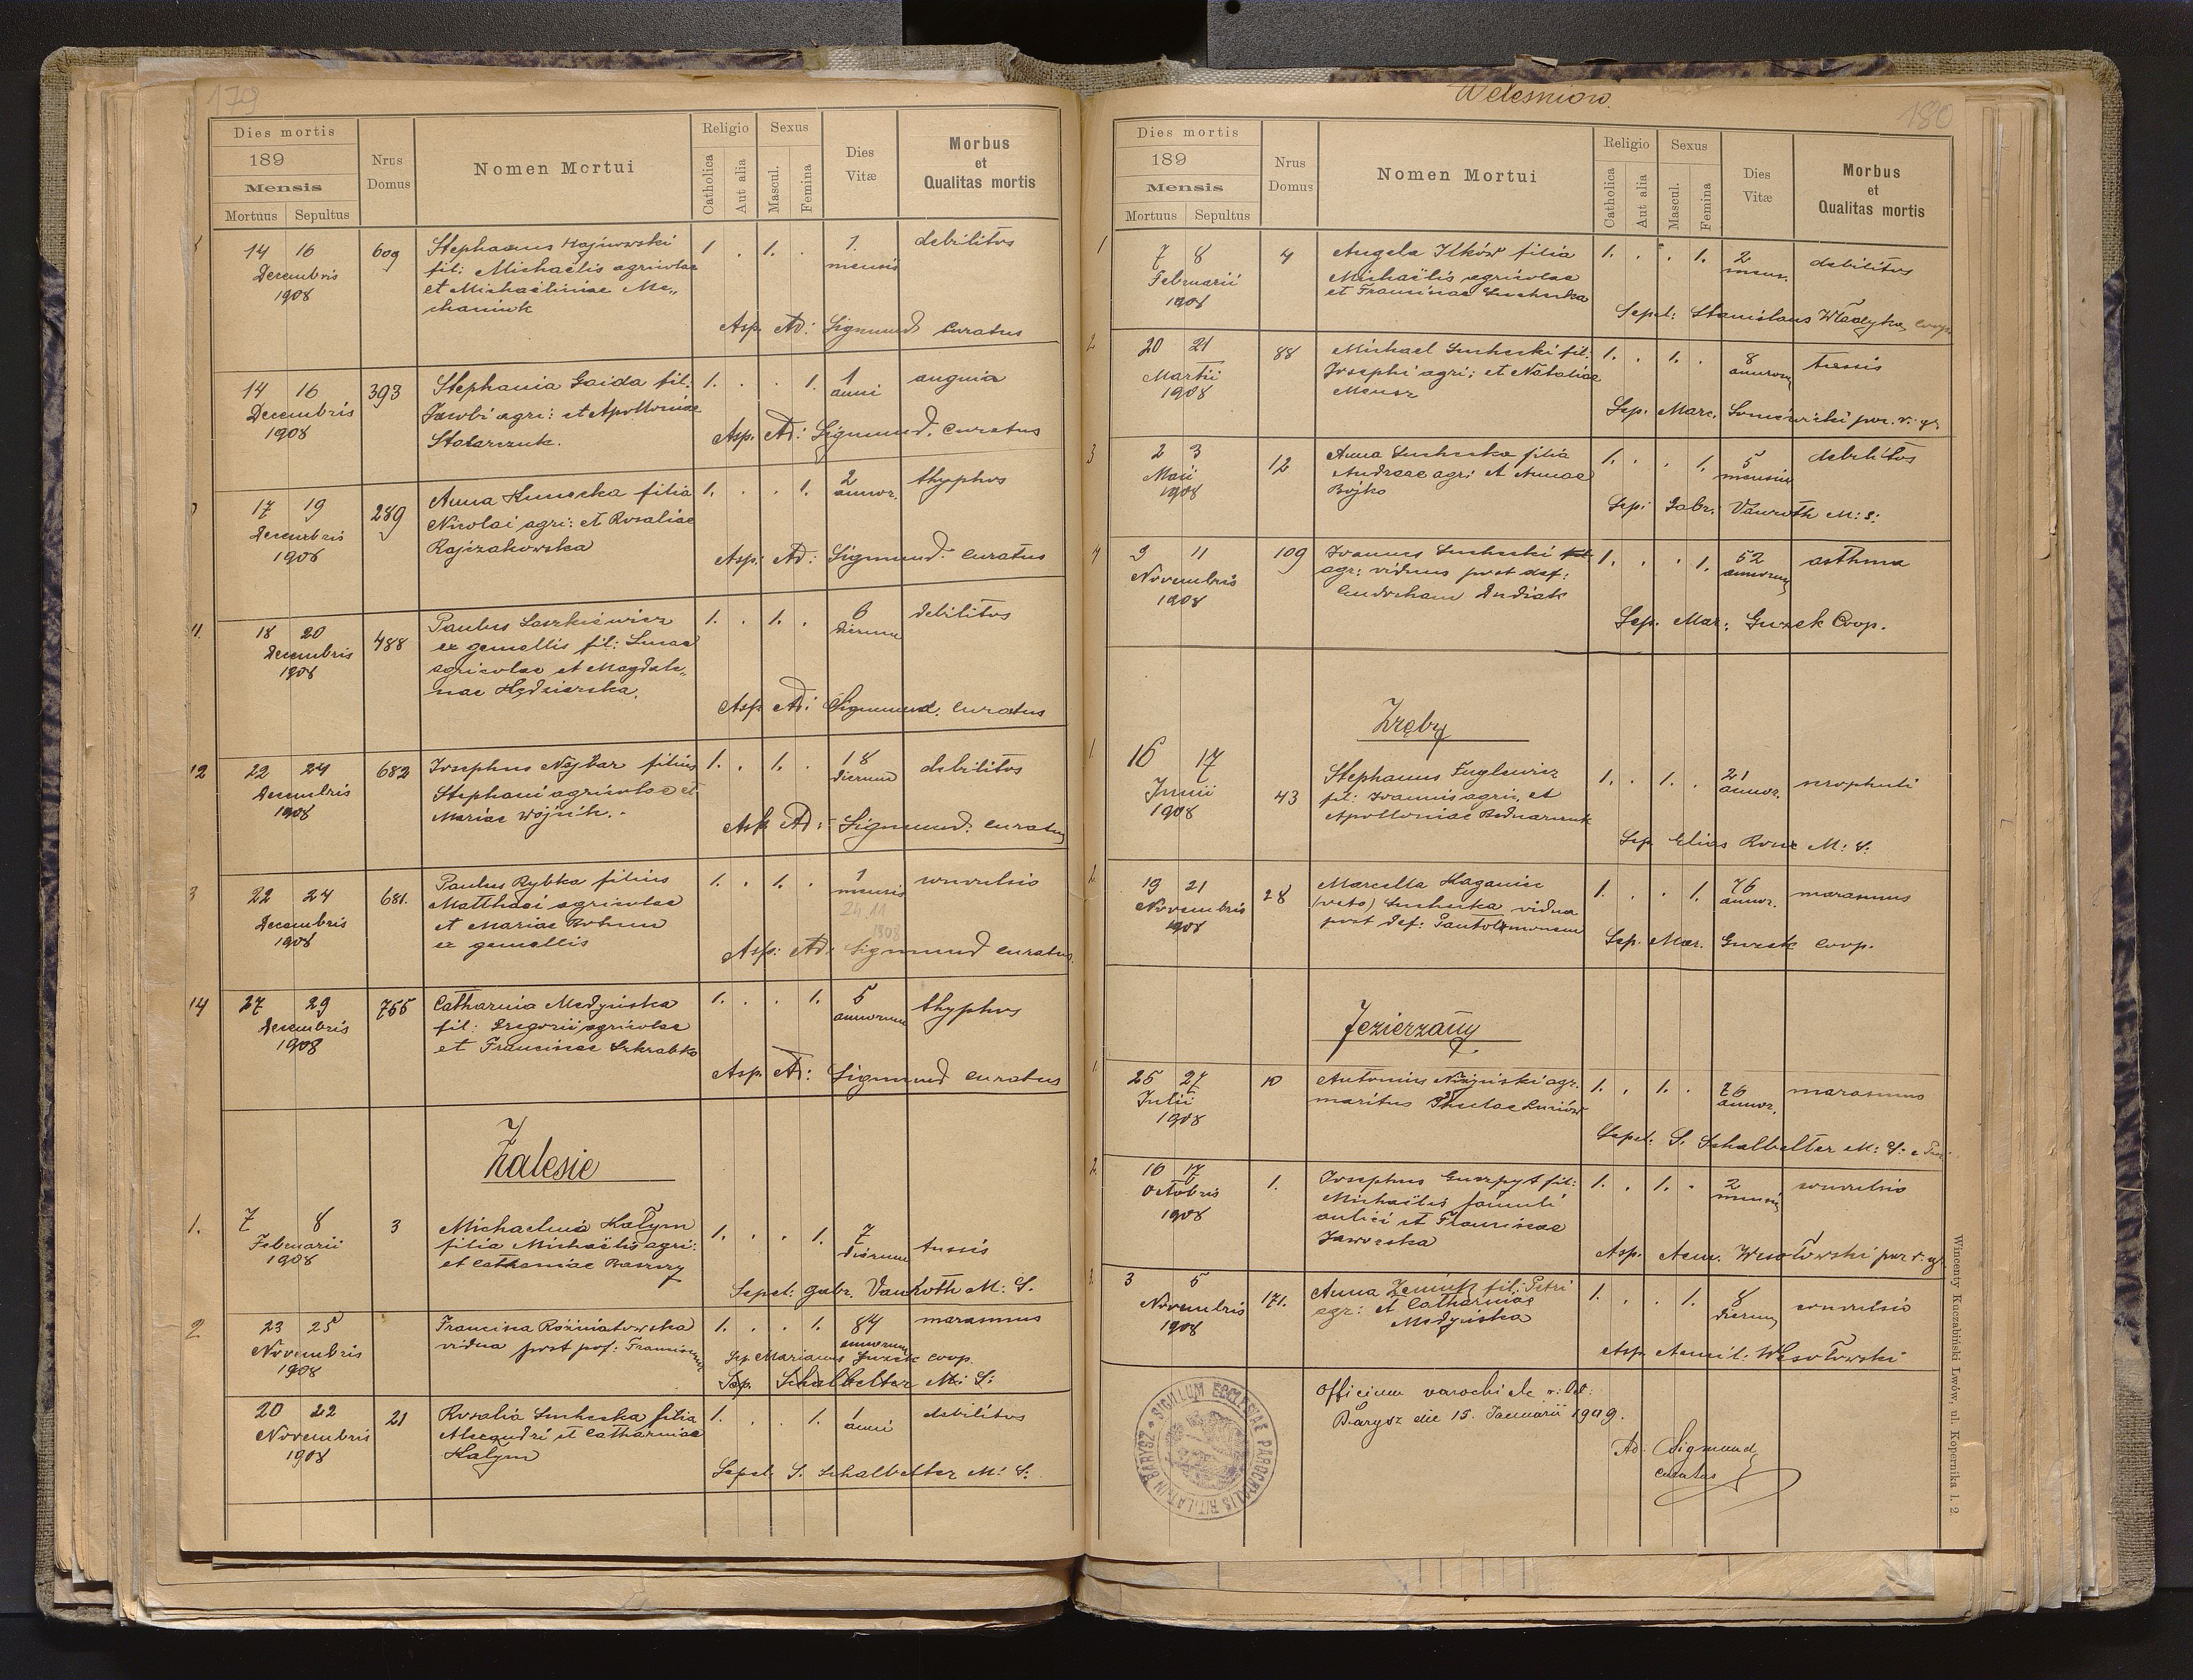 179
Dies mortis
189
Mensis
Mortuus Sepultus
Nrus Domus
Nomen Mortui
Religio
Catholica Aut alia
Sexus
Mascul. Femina
Dies Vitæ
Morbus
et
Qualitas mortis
14 16 609 Stephanus Hajnowski 1 1. 1. debilitas
Decembris fil: Michaëlis agricolae mensis
1908 et Michaëlinae Me„
chaniuk
Asp. Ad: Sigmund curatus
14 16 393 Stephania Gaida fil. 1. 1. 1 angina
Decembris Jacobi agri: et Apolloniae anni
1908 Stolarczuk.
Asp. Ad: Sigmund. curatus
17 19 289 Anna filia 1. 1. 2 thyphus
Decembris Nicolai agri: et Rosaliae annor.
1908 Rajczakowska
Asp: Ad: Sigmund. curatus
11. 18 20 488 Paulus Laszkiewicz 1. 1. 6 debilitas
Decembris ex gemellis fil: Lucae dierum
1908 agricolae et Magdale„
nae
Asp Ad: Sigmund. curatus
12 22 24 682 Josephus filius 1. 1. 18 debilitas
Decembris Stephani agricolae et dierum
1908 Mariae Wójcik.
Asp Ad: Sigmund: curatus
3 22 24 681. Paulus Rybka filius 1. 1. 1 convulsio
Decembris Matthaei agricolae mensis
1908 et Mariae 24.11
ex gemellis 1908
Asp: Ad: Sigmund curatus.
14 27 29 755 Catharina Medyńska 1. 1. 5 thyphus
Decembris fil: Gregorii agricolae annorum
1908 et Franciscae Szkrabko
Asp. Ad: Sigmund curatus
Zalesie
1. 7 8 3 Michaelina Kałym 1. 1. 7 tussis
Februarii filia Michaëlis agri: dierum
1908 et Catharinae
Sepel: Gabr. Vanroth M: S.
2 23 25 Francisca Rozniatowska 1. 1. 84 marasmus
Novembris vidua post annorum
1908 Sep. Marianus Guzek coop.
Sep. Schalbetter M: S:
20 22 21 Rosalia Suchecka filia 1. 1. 1 debilitas
Novembris Alexandri et Catharinae anni
1908 Kałym
Sepel. S. Schalbetter M: S:
Welesniow.
180
Dies mortis
189
Mensis
Mortuus Sepultus
Nrus Domus
Nomen Mortui
Religio
Catholica Aut alia
Sexus
Mascul. Femina
Dies Vitæ
Morbus
et
Qualitas mortis
1 7 8 4 Angela Ilków filia 1. 1. 2 debilitas
Februarii Michaëlis agricolae mens.
1908 et Franciscae Suchecka
Sepel: Stanislaus Władyka coop.
2 20 21 88 Michael Suchecki fil. 1. 1. 8 tussis
Martii Josephi agri: et Nataliae annorum
1908
Sep. Marc. par. r. gr.
3 2 3 12 Anna Suchecka filia 1. 1. 5 debilitas
Maii Andreae agri et Annae mensium
1908 Bojko
Sep: Gabr. Vanroth M: S:
4 9 11 109 Joannes Suchecki 1. 1. 52 asthma
Novembris agr: viduus post def: annorum
1908 Eudocham Dudiak
Sep. Mar: Guzek Coop.
Zręby
1. 16 17 43 Stephanus Fuglewicz 1. 1. 21 scrophuli
Junii fil: Joannis agric. et annor.
1908 Apolloniae Bednarczuk
Sep Elias M: S:
2. 19 21 28 Marcella Haganiec 1. 1. 76 marasmus
Novembris (voto) Suchecka vidua annor.
1908 post def: Pantolemonem
Sep. Mar. Guzek coop.
Jezierzany
1. 25 27 10 Antonius agr. 1. 1. 76 marasmus
Julii maritus annor.
1908
Sepel. S. Schalbetter M: S:
2. 16 17 1. Josephus fil: 1. 1. 2 convulsio
Octobris Michaëlis famuli mensium
1908 aulici et Franciscae
Jaworska
Asp. Aem. Wesołowski par r. gr
3. 3 5 171. Anna fil: Petri 1. 1. 8 convulsio
Novembris agr: et Catharinae dierum
1908 Medyńska
Asp Aemil: Wesołowski
Officium parochiale r: lat:
Barysz die 15. Januarii 1909.
Ad. Sigmund
curatus
SIGILLUM ECCLESIAE PAROCHIALIS RIT. LAT. IN BARYSZ
Wincenty Kuczabiński Lwów, ul. Kopernika l. 2.